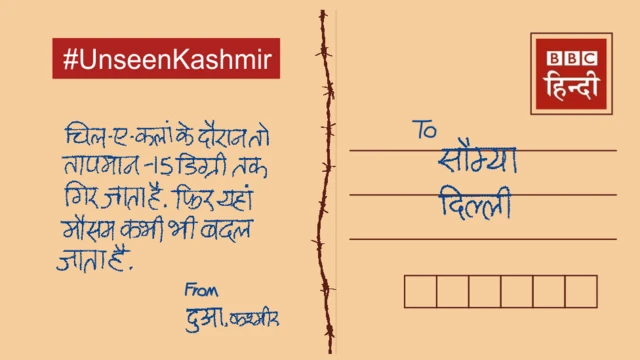 #UnseenKashmir
चिल-ए-कलां के दौरान तो
तापमान -15 डिग्री तक
गिर जाता है. फिर यहां
मौसम कभी भी बदल
जाता है.
From
दुआ, कश्मीर
BBC
हिन्दी
To
सौम्या
दिल्ली